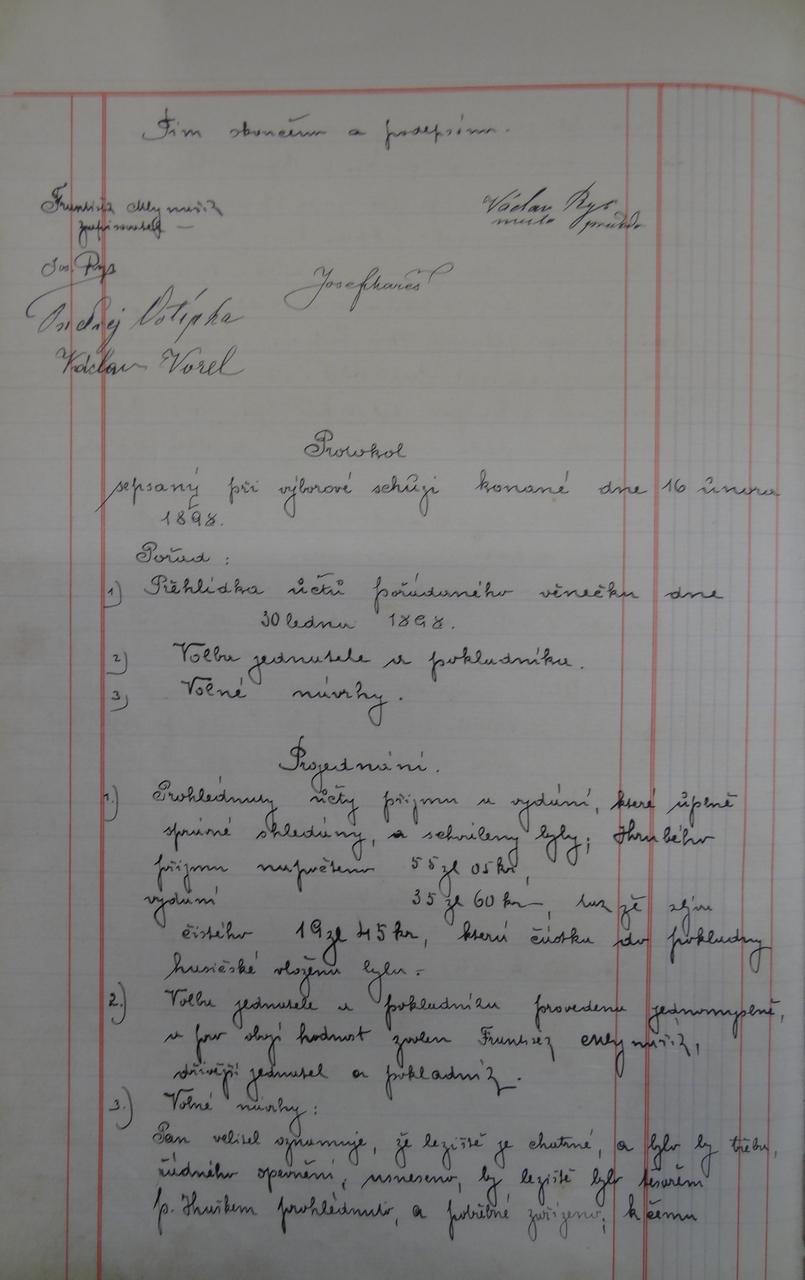 Tím skončeno a podepsáno.
František Mlynařík
zapisovatel
Václav Rys
místo předs
Jos. Rys
Josef Bareš
Ondřej Votípka
Václav Vorel
Protokol
sepsaný při výborové schůzi konané dne 16 února
1898.
Pořad:
1) Přěhlídka účtů pořádaného věnečku dne
30 ledna 1898.
2) Volba jednatele a pokladníka.
3) Volné návrhy.
Projednání.
1.) Prohlédnuty účty příjmu a vydání, které úplně
správné shledány, a schváleny byly; Hrubého
příjmu napočteno 55 zl 05 kr,
vydání 35 zl 60 kr,
čistého 19 zl 45 kr, kterú částka do pokladny
hasičské vložena byla.
2.) Volba jednatele a pokladníka provedena jednomyslně,
a pro obojí hodnost zvolen František Mlynařík,
dřívější jednatel a pokladník.
3.) Volné návrhy:
Pan velitel oznamuje, že leziště je chatrné, a bylo by třeba,
řádného opevnění, usneseno, by leziště bylo tesařem
p. Huškem prohlédnuto, a potřebné zařízeno, k čemu